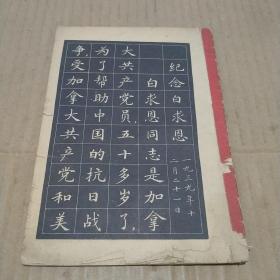 纪念白求恩
一九三九年十
二月二十一日
白求恩同志是加拿
大共产党员，五十多岁了，
为了帮助中国的抗日战
争，受加拿大共产党和美